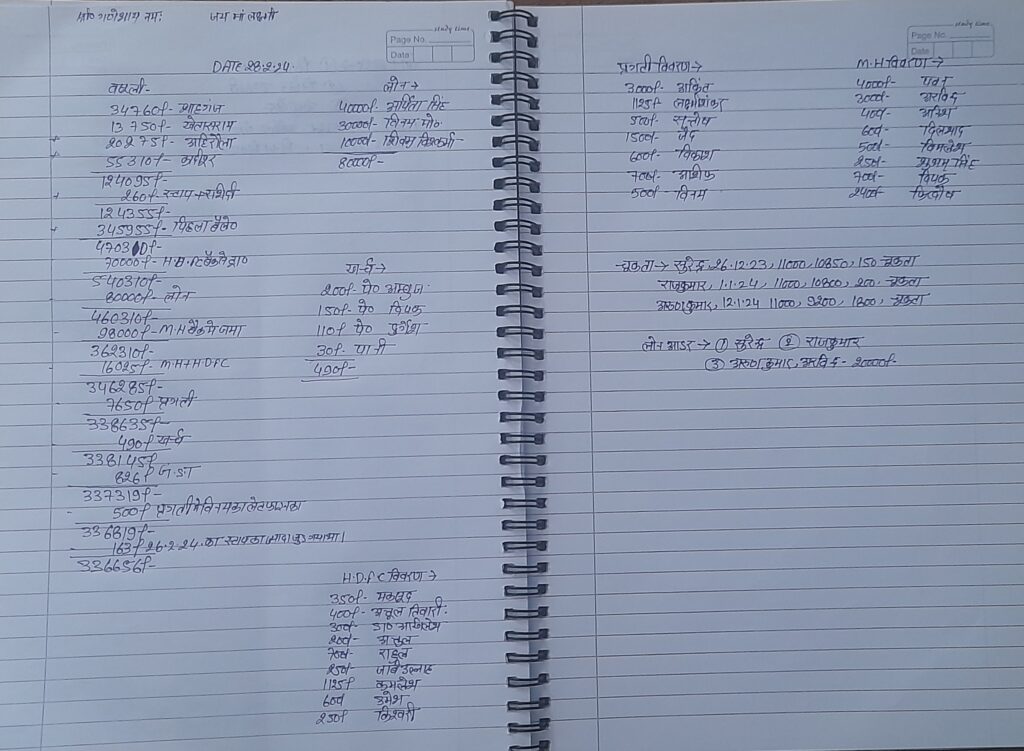 श्री गणेशाय नमः जय माँ लक्ष्मी
Study Time
Page No.
Date
DATE 28.2.24.
वसूली-
34760/- शाहगंज
13750/- खेतासराय
+ 20275/- अहिरौला
+ 55310/-
124095/-
+ 260/- स्टाम्प+रसीद
124355/-
+ 345955/- पिछला बैलेंस
470310/-
70000/- H.D.F.C बैंक से
540310/-
80000/- लोन
460310/-
- 98000/- M.H बैंक मे जमा
362310/-
- 16025/- M.H+HDFC
346285/-
- 7650/- प्रगती
338635/-
- 490/- खर्च
338145/-
- 826/-
337319/-
- 500/- प्रगती मे विनय का
336819/-
- 163/- 26.2.24 का
336656/-
लोन→
40000/- अर्पिता सिंह
30000/- विनय
10000/- शिवम विश्वकर्मा
80000/-
खर्च→
200/- पे० अम्बुज
150/- पे० दिपक
110/- पे०
30/- पानी
490/-
H.D.F.C विवरण→
350/- मकसूद
400/- अतुल तिवारी
300/- अखिलेश
200/- अतुल
700/- राहुल
250/-
1125/- कमलेश
600/- उमेश
250/-
Study Time
Page No.
Date
प्रगती विवरण→
3000/- अंकित
1125/-
500/- सन्तोष
1500/-
600/- विकाश
700/- आशीष
500/- विनय
M.H विवरण→
4000/- पवन
3000/- अरविंद
400/-
600/- दिलशाद
500/- विमलेश
250/- शुभम सिंह
700/- दिपक
2400/-
चुकता→ सुरेन्द्र, 26.12.23, 11000, 10850, 150 चुकता
राजकुमार, 1.1.24, 11000, 10800, 200. चुकता
अरुण कुमार, 12.1.24 11000, 9200, 1800, चुकता
लोन आडर→ ① सुरेन्द्र ② राजकुमार
③ अरुण कुमार, अरविंद - 20000/-